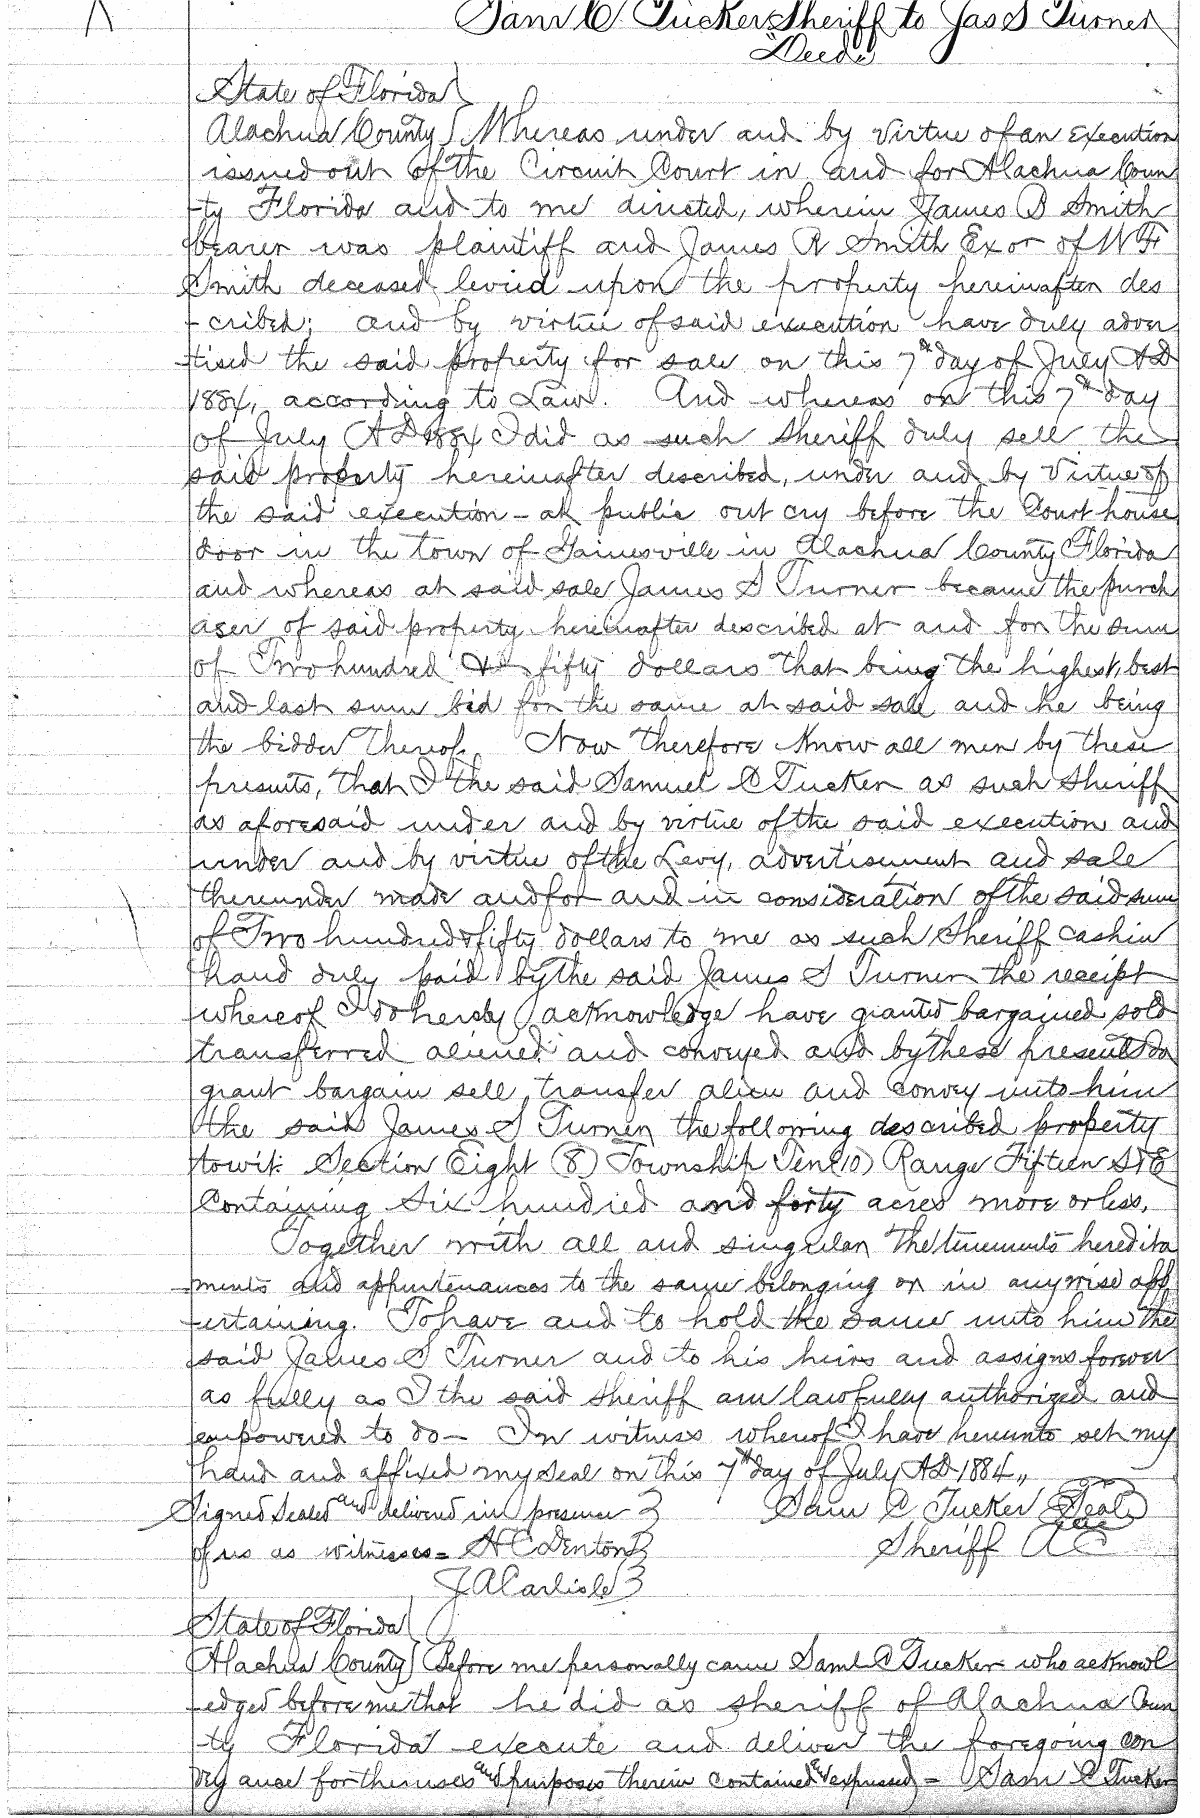 Saml C. Tucker Sheriff to Jas S Turner
Deed
State of Florida
Alachua County Whereas under and by virtue of an Execution
issued out of the Circuit Court in and for Alachua Coun
-ty Florida and to me directed, wherein James B Smith
bearer was plaintiff and James R Smith Exor of W F
Smith deceased levied upon the property hereinafter des
-cribed; and by virtue of said execution have duly adver
-tised the said property for sale on this 7th day of July AD
1884, according to Law. And whereas on this 7th day
of July AD 1884 I did as such Sheriff duly sell the
said property hereinafter described, under and by virtue of
the said execution - at public out cry before the Court house
door in the town of Gainesville in Alachua County Florida
and whereas at said sale James S Turner became the purch
aser of said property hereinafter described at and for the sum
of Two hundred & fifty dollars that being the highest, best
and last sum bid for the same at said sale and he being
the bidder thereof. Now therefore Know all men by these
presents, that I the said Samuel C Tucker as such Sheriff
as aforesaid under and by virtue of the said execution and
under and by virtue of the Levy, advertisement and sale
thereunder made and for and in consideration of the said sum
of Two hundred & fifty dollars to me as such Sheriff cash in
hand duly paid by the said James S Turner the receipt
whereof I do hereby acknowledge have granted bargained sold
transferred aliened and conveyed and by these presents do
grant bargain sell transfer alien and convey unto him
the said James S Turner, the following described property
towit: Section Eight (8) Township Ten (10) Range Fifteen S & E
Containing Six hundred and forty acres more or less.
Together with all and singular the tenements heredita
-ments and appurtenances to the same belonging or in anywise app
-ertaining. To have and to hold the same unto him the
said James S Turner and to his heirs and assigns forever
as fully as I the said Sheriff am lawfully authorized and
empowered to do - In witness whereof I have hereunto set my
hand and affixed my seal on this 7th day of July AD 1884,,
Signed Sealed and delivered in presence Sam C Tucker Seal
of us as witnesses = A C Denton Sheriff AC
J A Carlisle
State of Florida
Alachua County Before me personally came Saml C Tucker who acknowl
-edged before me that he did as sheriff of Alachua Coun
-ty Florida execute and deliver the foregoing con
vey ance for the uses and purposes therein contained and expressed = Sam C Tucker